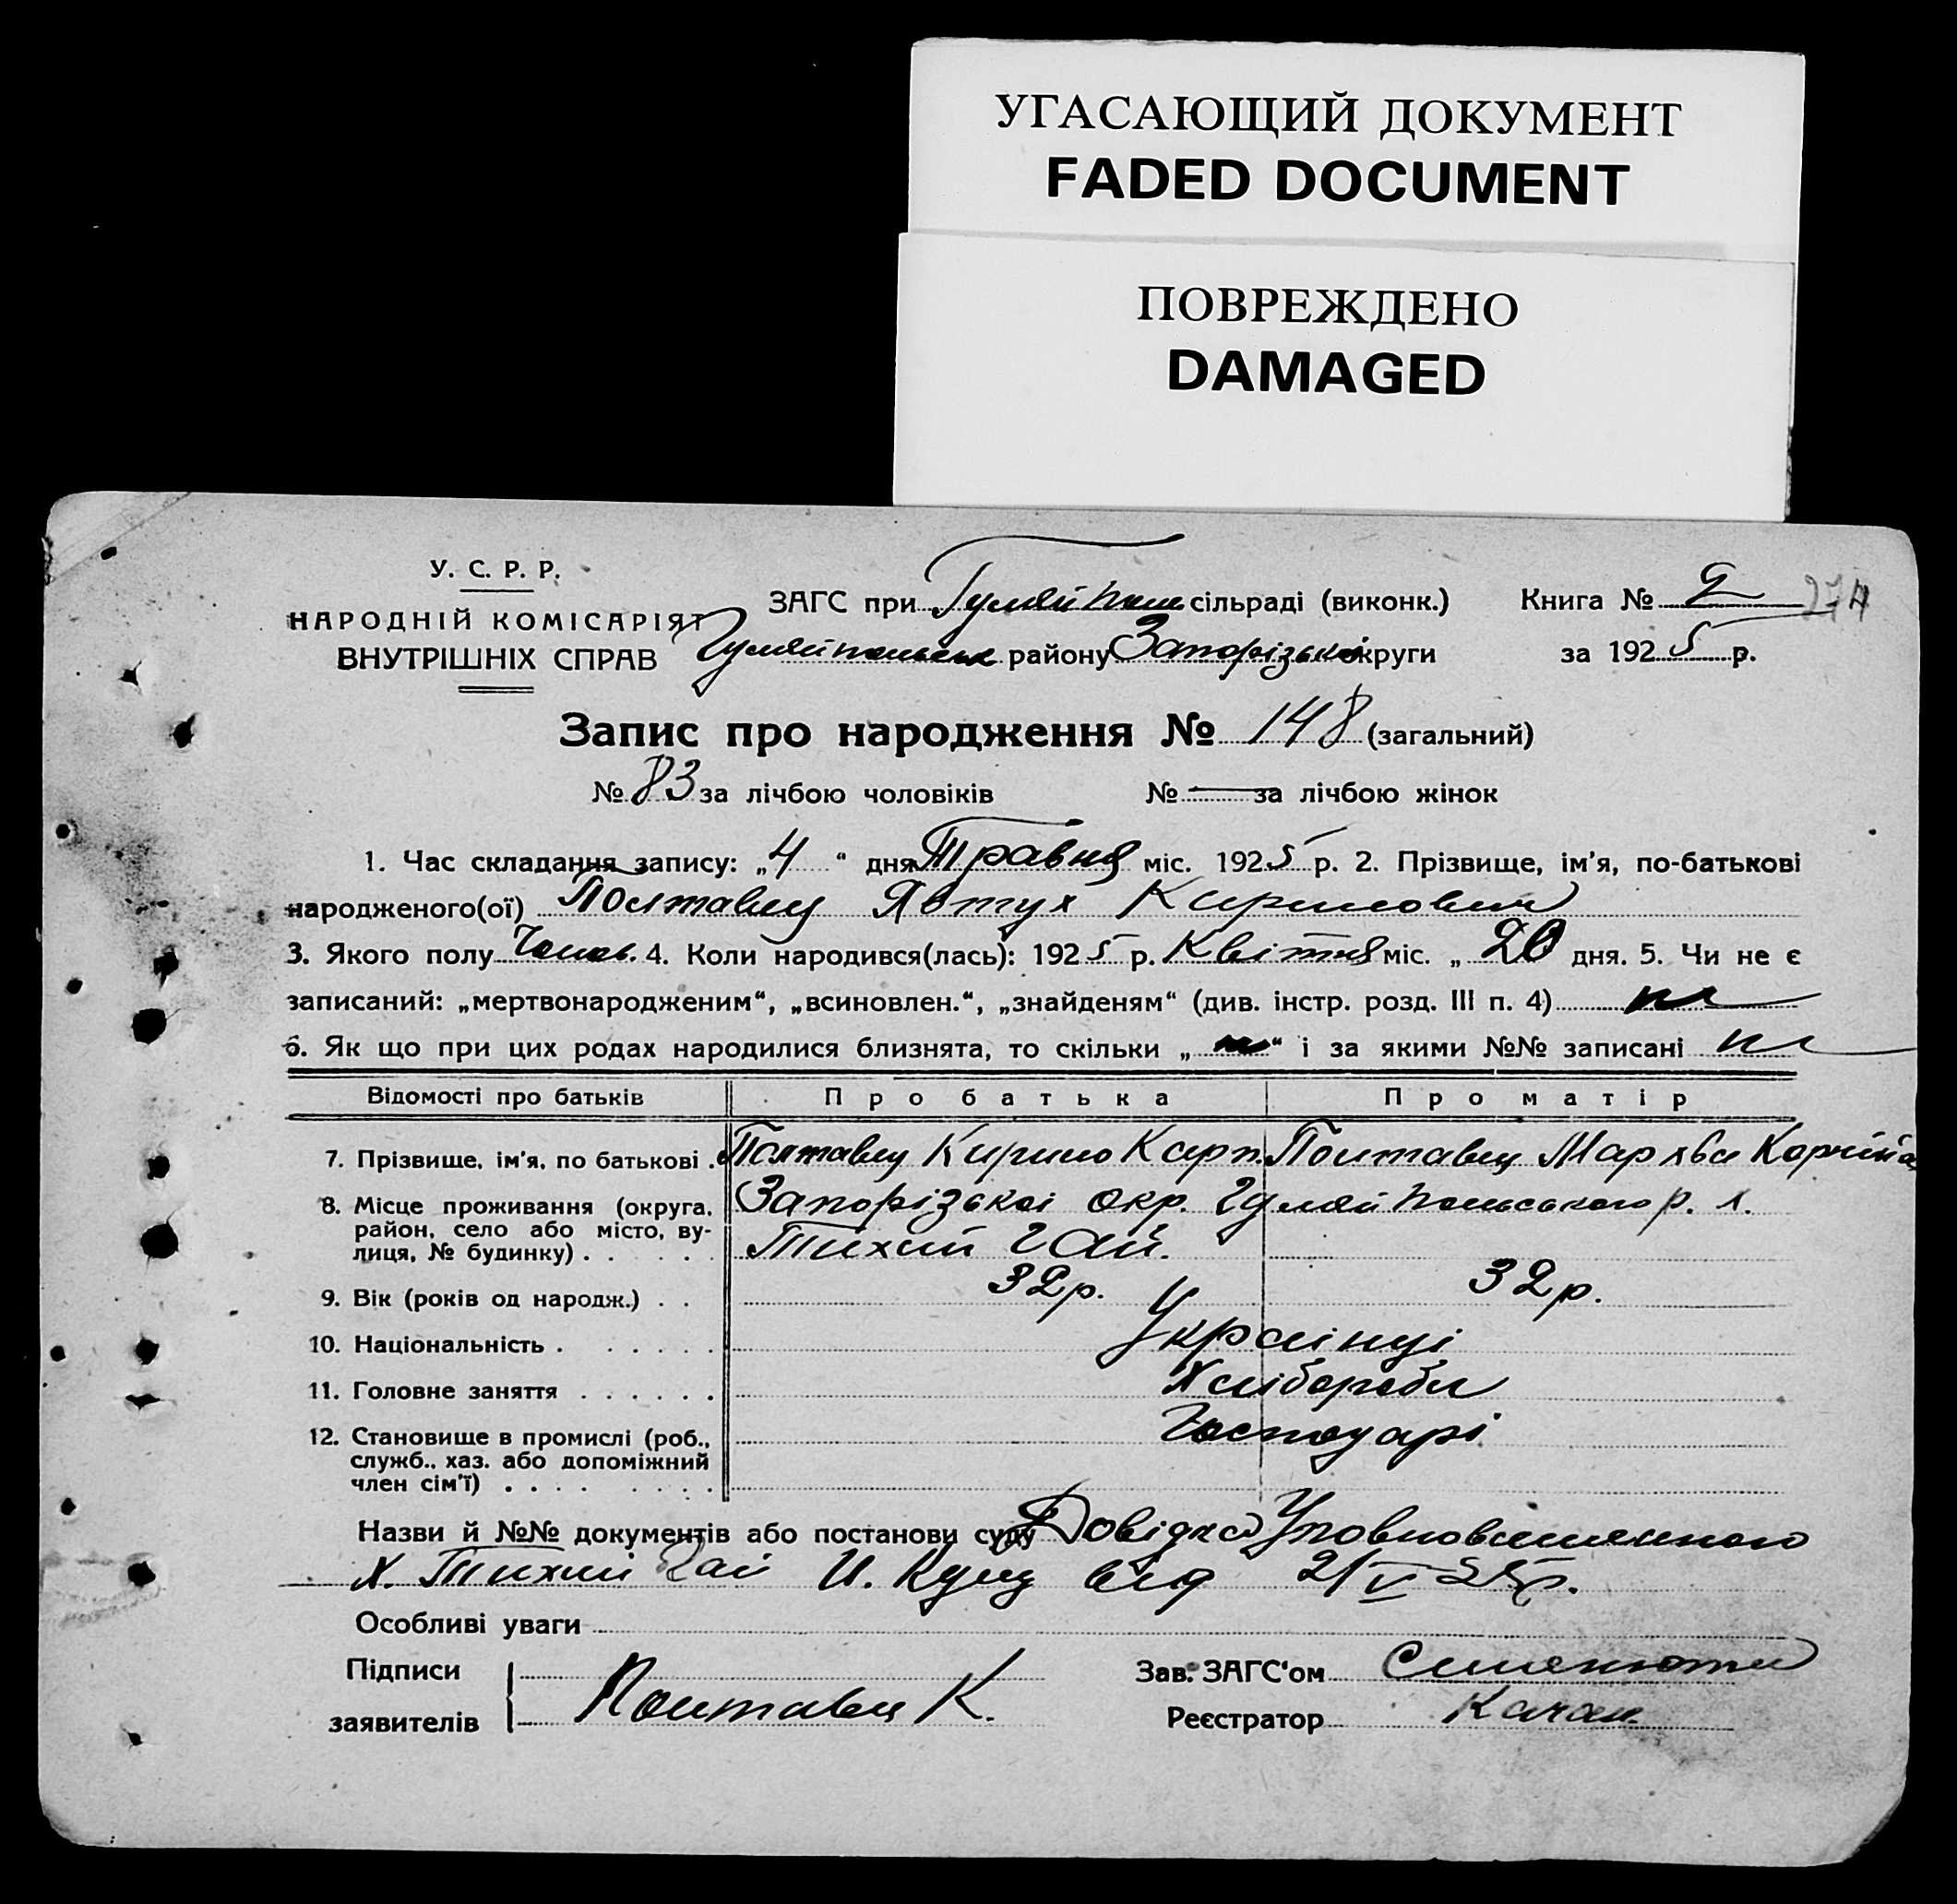 УГАСАЮЩИЙ ДОКУМЕНТ
FADED DOCUMENT
ПОВРЕЖДЕНО
DAMAGED
У. С. Р. Р.
НАРОДНІЙ КОМІСАРІЯТ
ВНУТРІШНІХ СПРАВ
ЗАГС при Гуляйполе сільраді (виконк.) Книга № 2 274
Гуляйпольськ району Запорізької округи за 1925 р.
Запис про народження № 148 (загальний)
№ 83 за лічбою чоловіків № — за лічбою жінок
1. Час складання запису: „4“ дня Травня міс. 1925 р. 2. Прізвище, ім'я, по-батькові
народженого(ої) Полтавец Явтух Кирилович
3. Якого полу Чолов. 4. Коли народився(лась): 1925 р. Квітня міс. „20 дня. 5. Чи не є
записаний: „мертвонародженим“, „всиновлен.“, „знайденям“ (див. інстр. розд. III п. 4) ні
6. Як що при цих родах народилися близнята, то скільки „ні“ і за якими №№ записані ні
Відомості про батьків Про батька Про матір
7. Прізвище, ім'я, по батькові . Полтавец Кирило Карп. Полтавец Мархва Корніївна
8. Місце проживання (округа, район, село або місто, вулиця, № будинку) . . . . . Запорізької окр. Гуляйпольського р. х.
Тихий Гай.
9. Вік (років од народж.) . . 32 р. 32 р.
10. Національність . . . . . . Українці
11. Головне заняття . . . . . . Хлібороби
12. Становище в промислі (роб., служб., хаз. або допоміжний член сім'ї) . . . . . . . . Господарі
Назви й №№ документів або постанови суду Довідка Уповноваженного
х. Тихий Гай И. Куц від 2/V 25 р.
Особливі уваги
Підписи Зав. ЗАГС'ом
заявителів Полтавец К. Реєстратор Качан